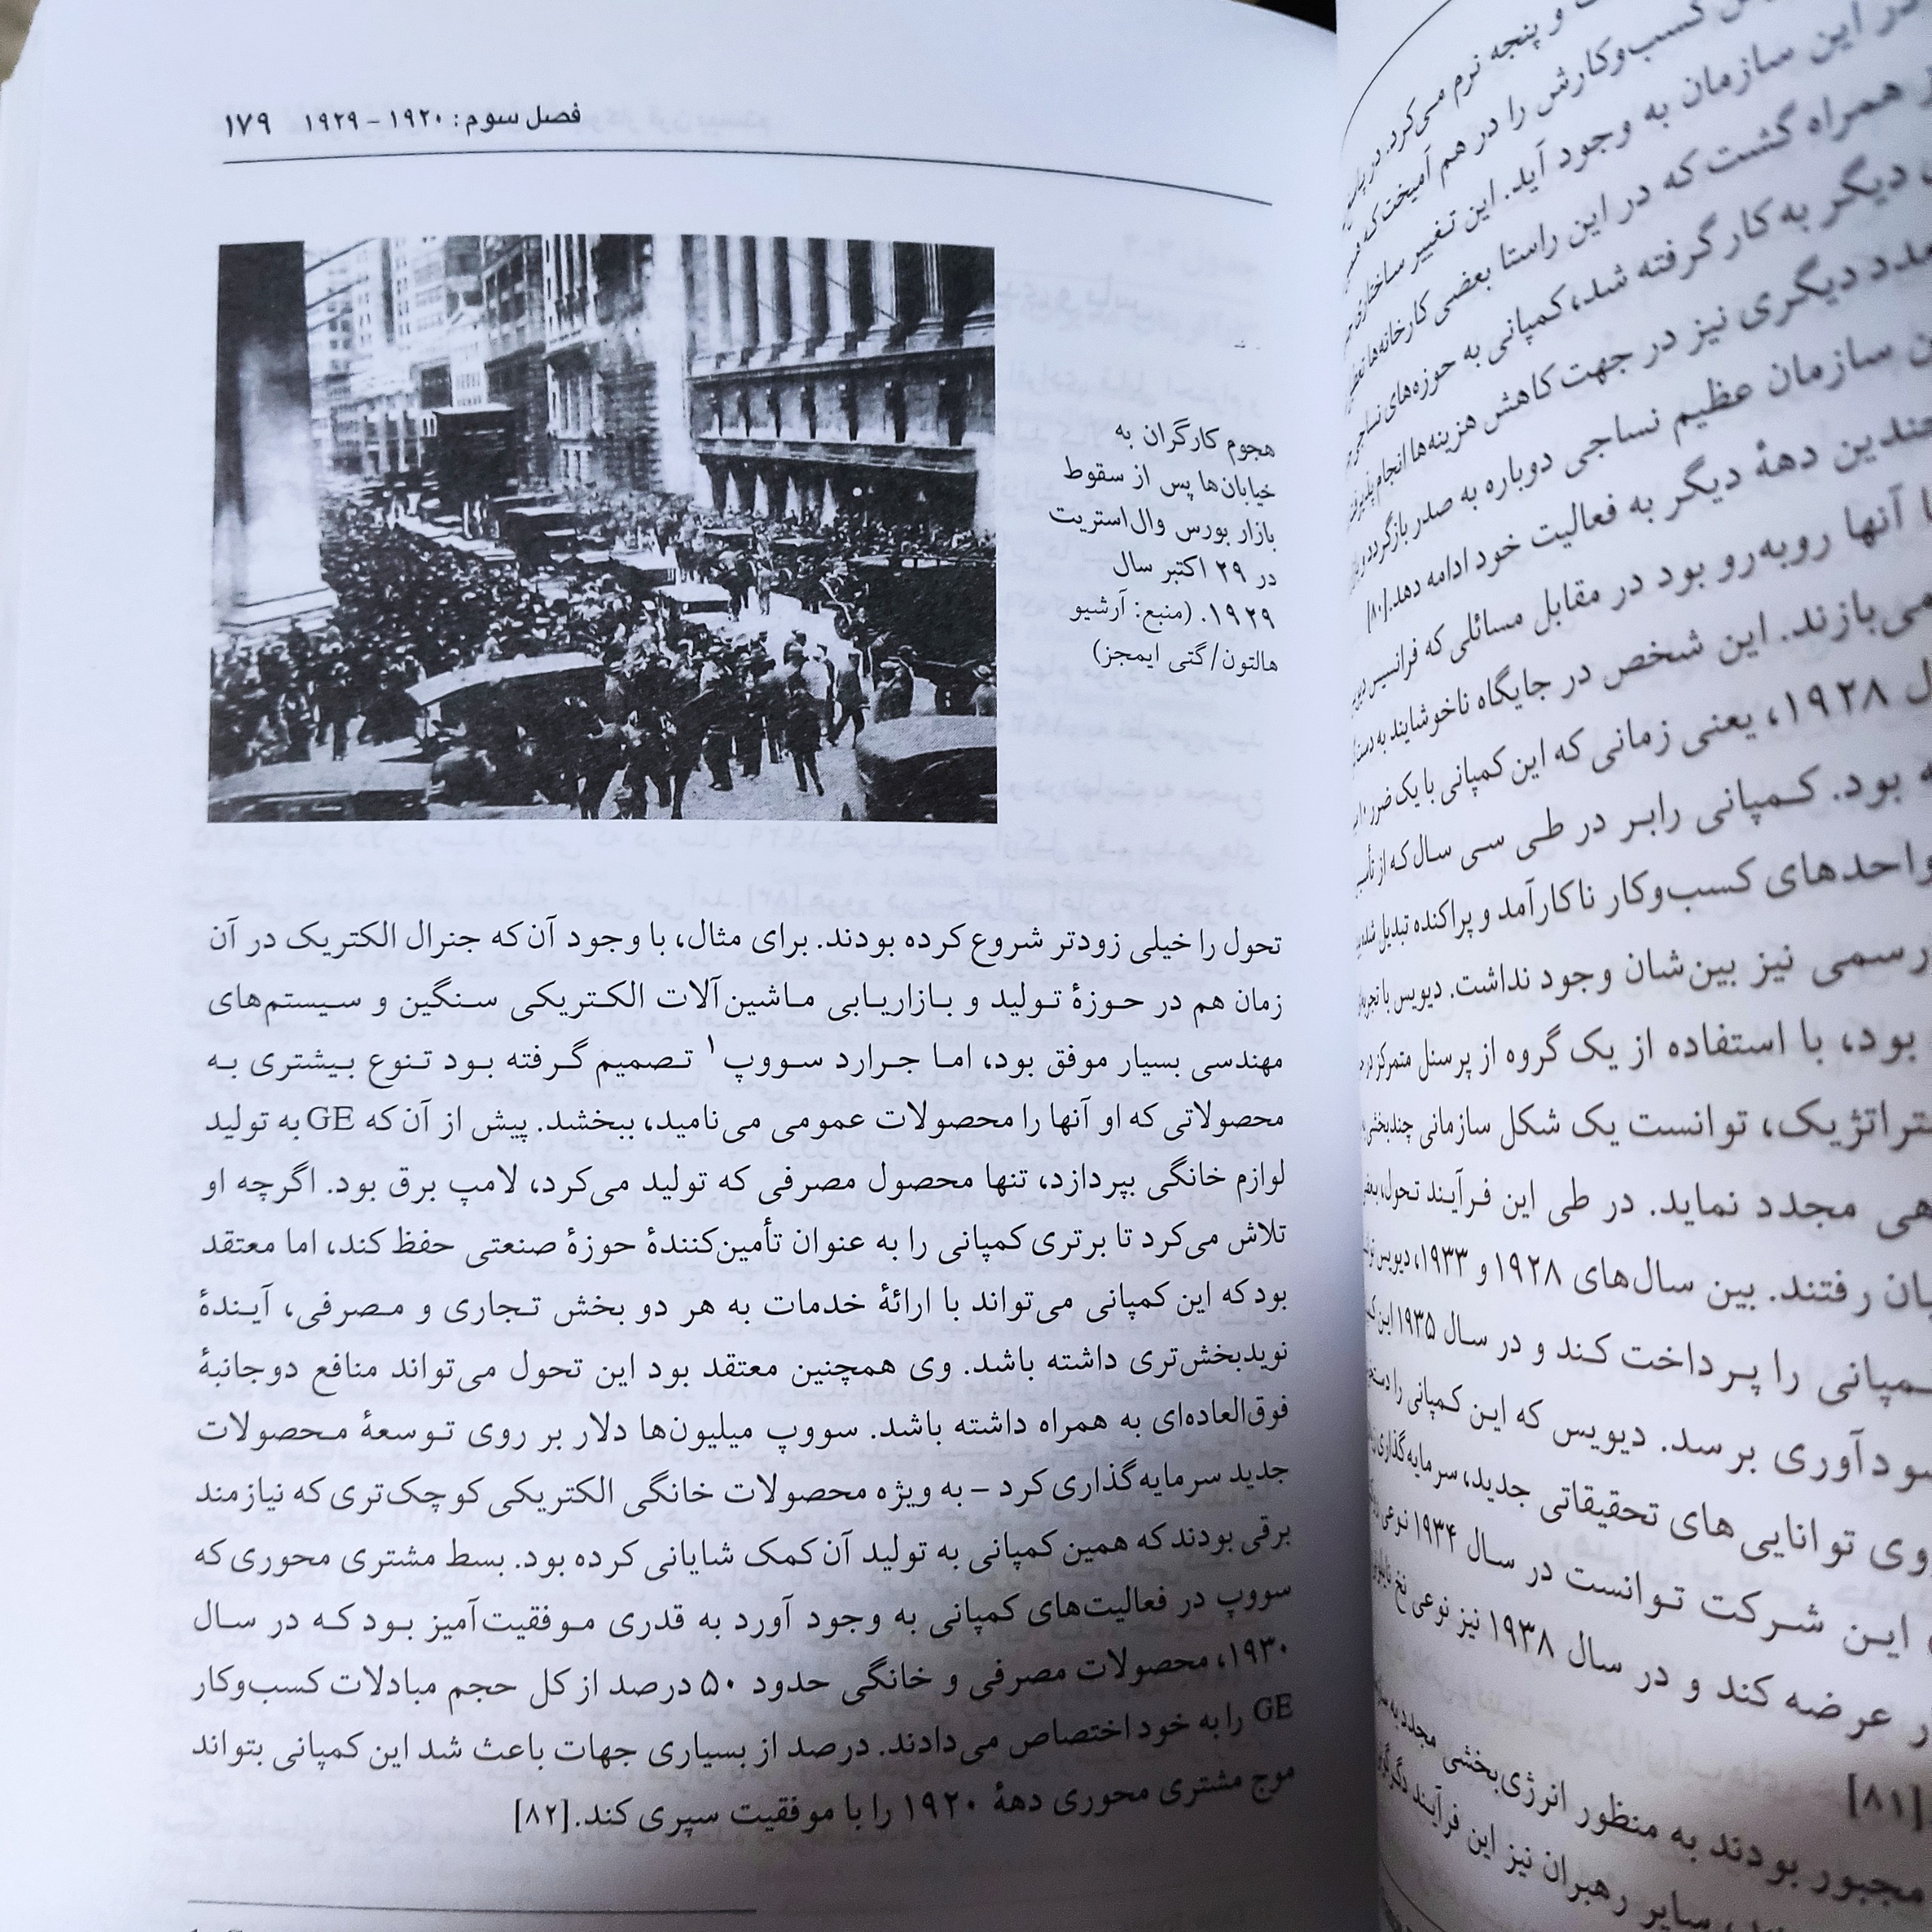 فصل سوم: ۱۹۲۰ – ۱۹۲۹ ۱۷۹
هجوم کارگران به
خیابان‌ها پس از سقوط
بازار بورس وال‌استریت
در ۲۹ اکتبر سال
۱۹۲۹. (منبع: آرشیو
هالتون/گتی ایمجز)
تحول را خیلی زودتر شروع کرده بودند. برای مثال، با وجود آن‌که جنرال الکتریک در آن
زمان هم در حوزهٔ تولید و بازاریابی ماشین‌آلات الکتریکی سنگین و سیستم‌های
مهندسی بسیار موفق بود، اما جرارد سووپ۱ تصمیم گرفته بود تنوع بیشتری به
محصولاتی که او آنها را محصولات عمومی می‌نامید، ببخشد. پیش از آن‌که GE به تولید
لوازم خانگی بپردازد، تنها محصول مصرفی که تولید می‌کرد، لامپ برق بود. اگرچه او
تلاش می‌کرد تا برتری کمپانی را به عنوان تأمین‌کنندهٔ حوزهٔ صنعتی حفظ کند، اما معتقد
بود که این کمپانی می‌تواند با ارائهٔ خدمات به هر دو بخش تجاری و مصرفی، آیندهٔ
نویدبخش‌تری داشته باشد. وی همچنین معتقد بود این تحول می‌تواند منافع دوجانبهٔ
فوق‌العاده‌ای به همراه داشته باشد. سووپ میلیون‌ها دلار بر روی توسعهٔ محصولات
جدید سرمایه‌گذاری کرد – به ویژه محصولات خانگی الکتریکی کوچک‌تری که نیازمند
برقی بودند که همین کمپانی به تولید آن کمک شایانی کرده بود. بسط مشتری محوری که
سووپ در فعالیت‌های کمپانی به وجود آورد به قدری موفقیت‌آمیز بود که در سال
۱۹۳۰، محصولات مصرفی و خانگی حدود ۵۰ درصد از کل حجم مبادلات کسب‌وکار
GE را به خود اختصاص می‌دادند. درصد از بسیاری جهات باعث شد این کمپانی بتواند
موج مشتری محوری دههٔ ۱۹۲۰ را با موفقیت سپری کند.[۸۲]
و پنجه نرم می‌کرد. در
کسب‌وکارش را در هم آمیخت که
در این سازمان به وجود آید. این تغییر ساختاری
همراه گشت که در این راستا بعضی کارخانه‌ها
دیگر به کار گرفته شد، کمپانی به حوزه‌های نساجی
دیگری نیز در جهت کاهش هزینه‌ها انجام پذیرفت
سازمان عظیم نساجی دوباره به صدر بازگردد و
چندین دههٔ دیگر به فعالیت خود ادامه دهد.[۸۰]
آنها روبه‌رو بود در مقابل مسائلی که فرانسیس
می‌بازند. این شخص در جایگاه ناخوشایند به
۱۹۲۸، یعنی زمانی که این کمپانی با یک ضرر
بود. کمپانی رابر در طی سی سال که از
واحدهای کسب‌وکار ناکارآمد و پراکنده تبدیل
رسمی نیز بین‌شان وجود نداشت. دیویس با
بود، با استفاده از یک گروه از پرسنل متمرکز در
توانست یک شکل سازمانی
مجدد نماید. در طی این فرآیند تحول،
رفتند. بین سال‌های ۱۹۲۸ و ۱۹۳۳، دیویس
را پرداخت کند و در سال ۱۹۳۵ این
برسد. دیویس که این کمپانی را
توانایی‌های تحقیقاتی جدید، سرمایه‌گذاری
این شرکت توانست در سال ۱۹۳۴ نوعی
عرضه کند و در سال ۱۹۳۸ نیز نوعی نخ
[۸۱]
مجبور بودند به منظور انرژی‌بخشی مجدد به
سایر رهبران نیز این فرآیند